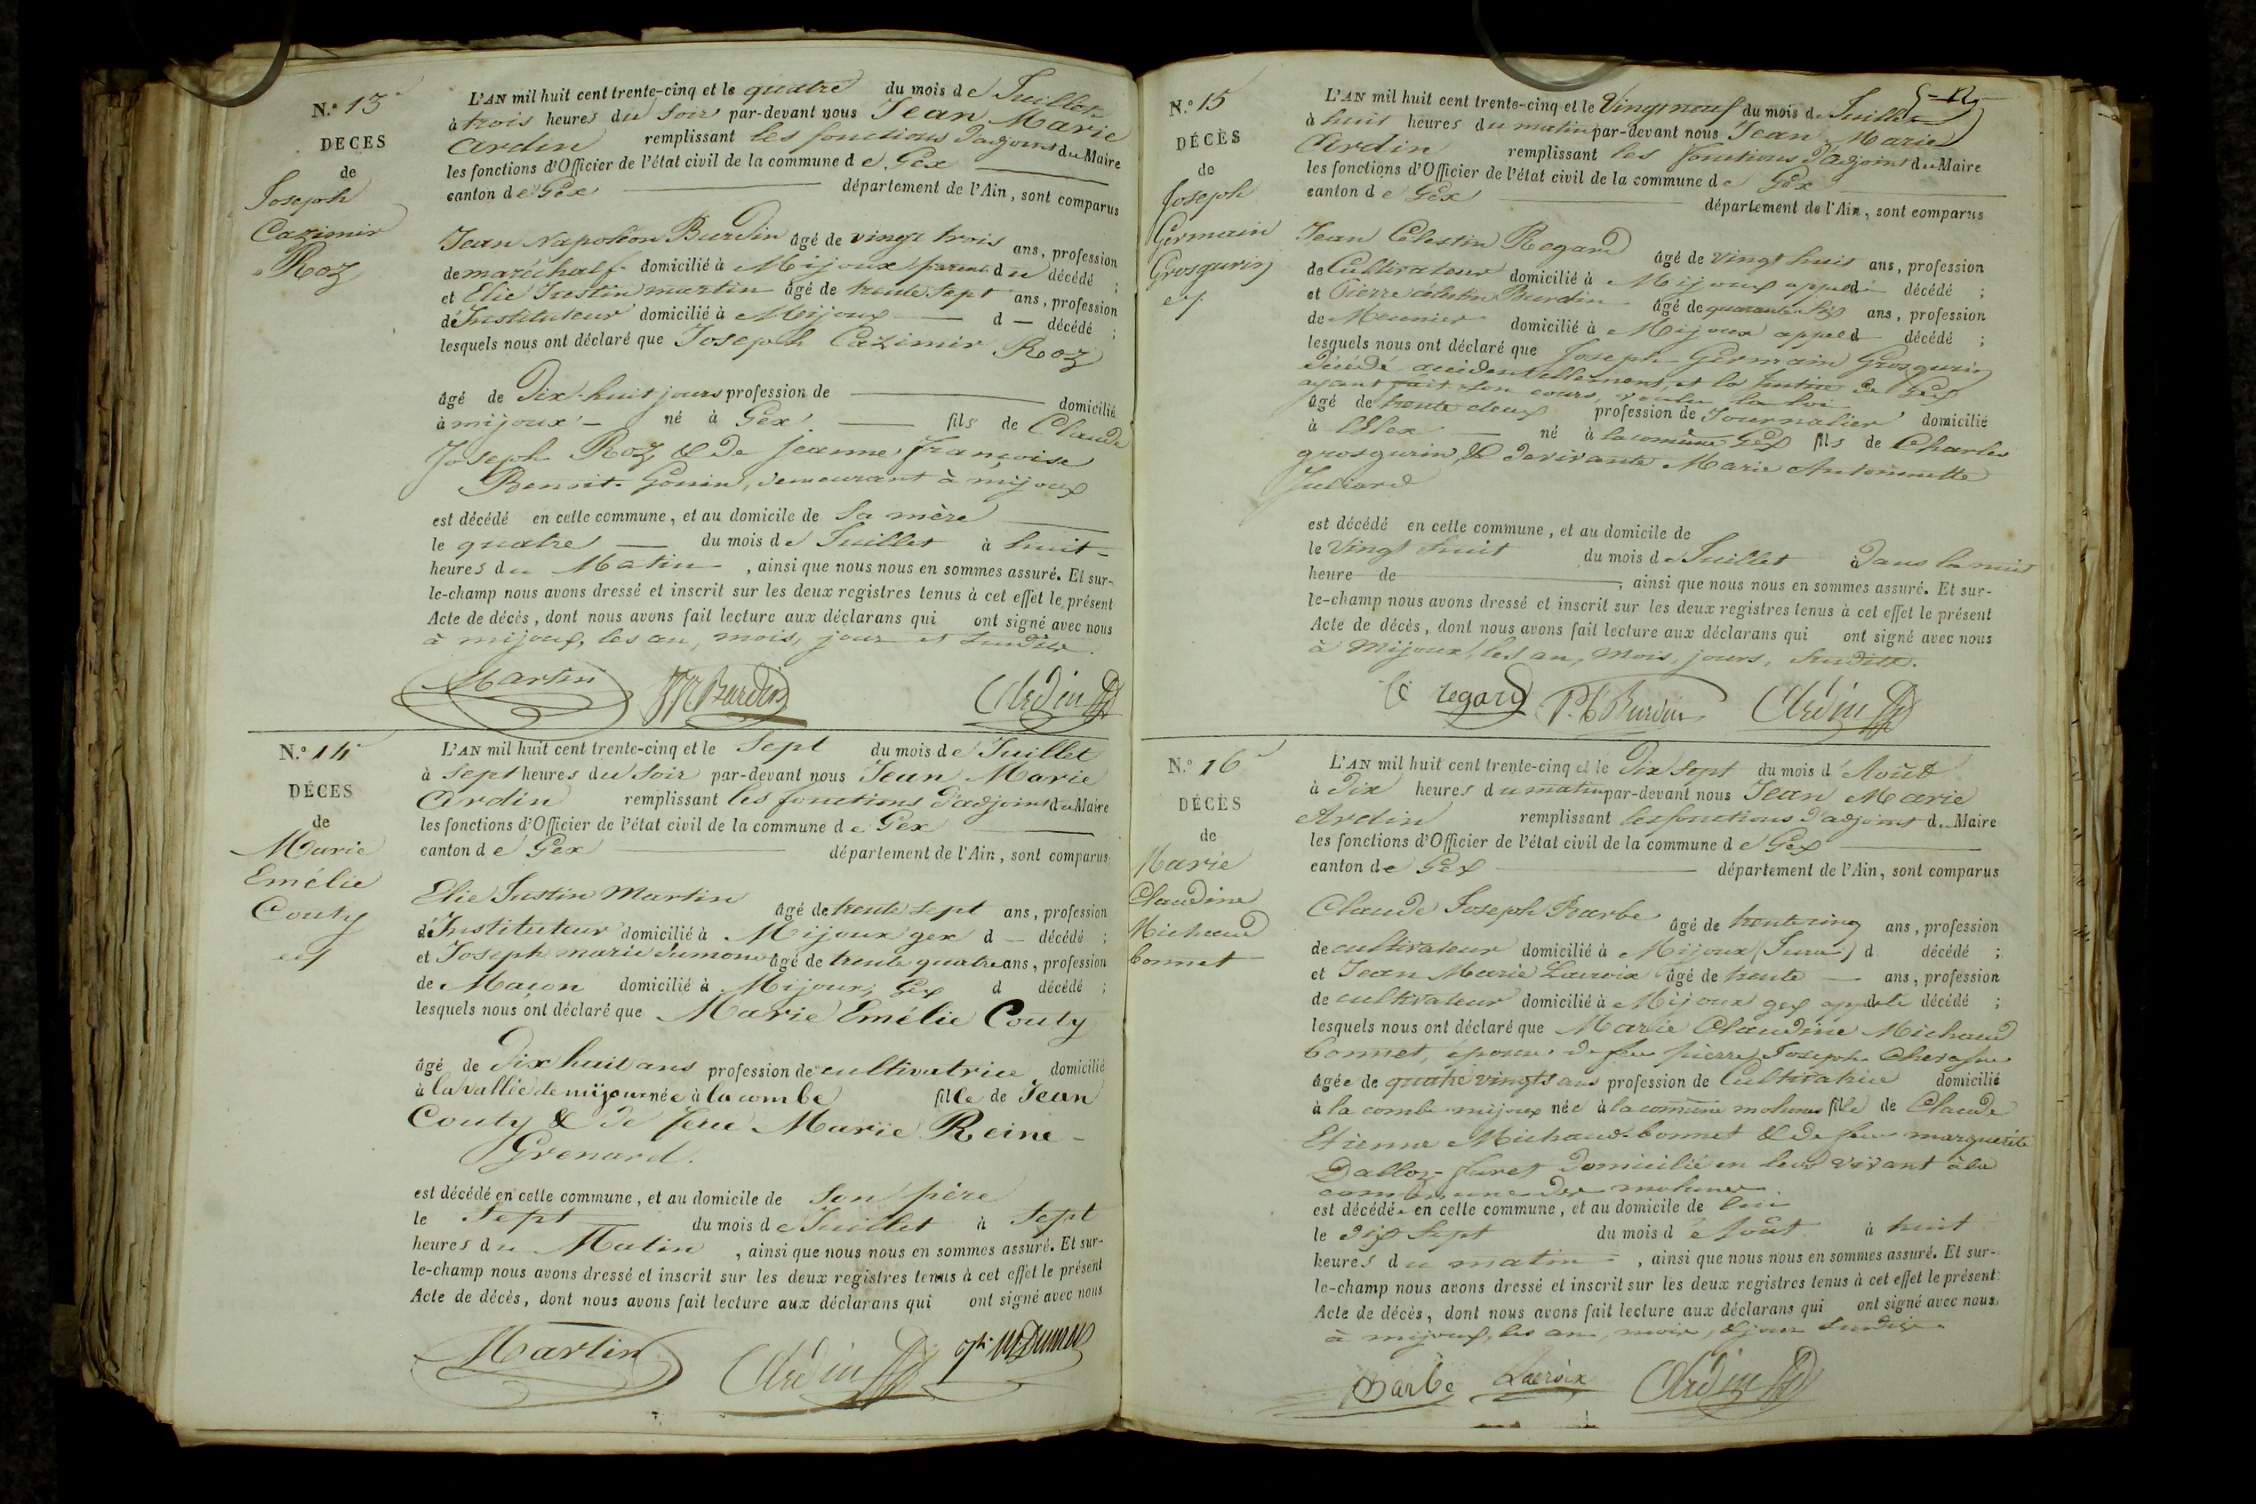 N.º 13
DECES
de
Joseph
Cazimir
Roz
L'AN mil huit cent trente-cinq et le quatre du mois de Juillet
à trois heures du Soir par-devant nous Jean Marie
Ardin remplissant les fonctions d'adjoint du Maire
les fonctions d'Officier de l'état civil de la commune de Gex
canton de Gex département de l'Ain, sont comparus
Jean Napoléon Burdin âgé de vingt trois ans, profession
de maréchalf. domicilié à Mijoux parent du décédé ;
et Elie Justin martin âgé de trente sept ans, profession
d'Instituteur domicilié à Mijoux d — décédé ;
lesquels nous ont déclaré que Joseph Cazimir Roz
âgé de Dix-huit jours profession de domicilié
à mijoux né à Gex fils de Claude
Joseph Roz & de Jeanne Françoise
Benoit-Gonin, demeurant à mijoux
est décédé en cette commune, et au domicile de Sa mère
le quatre du mois de Juillet à huit
heures du Matin, ainsi que nous nous en sommes assuré. Et sur-
le-champ nous avons dressé et inscrit sur les deux registres tenus à cet effet le présent
Acte de décès, dont nous avons fait lecture aux déclarans qui ont signé avec nous
à mijoux, les an, mois, jour et Susdits.
Martin JN Burdin Ardin
N.º 14
DÉCES
de
Marie
Emélie
Couty
L'AN mil huit cent trente-cinq et le Sept du mois de Juillet
à sept heures du Soir par-devant nous Jean Marie
Ardin remplissant les fonctions d'adjoint du Maire
les fonctions d'Officier de l'état civil de la commune de Gex
canton de Gex département de l'Ain, sont comparus
Elie Justin Martin âgé de trente sept ans, profession
d'Instituteur domicilié à Mijoux gex d — décédé ;
et Joseph marie Dumont âgé de trente quatre ans, profession
de Maçon domicilié à Mijoux, Gex d décédé ;
lesquels nous ont déclaré que Marie Emélie Couty
âgé de Dix huit ans profession de cultivatrice domicilié
à la vallée de mijoux née à la combe fille de Jean
Couty & de feue Marie Reine-
Grenard.
est décédé en cette commune, et au domicile de Son père
le Sept du mois de Juillet à Sept
heures du Matin, ainsi que nous nous en sommes assuré. Et sur-
le-champ nous avons dressé et inscrit sur les deux registres tenus à cet effet le présent
Acte de décès, dont nous avons fait lecture aux déclarans qui ont signé avec nous
Martin Ardin jh M Dumont
N.º 15
DÉCÈS
de
Joseph
Germain
Grosgurin
L'AN mil huit cent trente-cinq et le Vingt neuf du mois de Juillet
à huit heures du matin par-devant nous Jean Marie
Ardin remplissant les fonctions d'adjoint du Maire
les fonctions d'Officier de l'état civil de la commune de Gex
canton de Gex département de l'Ain, sont comparus
Jean Célestin Regard âgé de vingt huit ans, profession
de Cultivateur domicilié à Mijoux appelé décédé ;
et Pierre célestin Burdin âgé de quarante Six ans, profession
de Meunier domicilié à Mijoux appelé décédé ;
lesquels nous ont déclaré que Joseph Germain Grosgurin
décédé accidentellement, et la Justice de Gex
ayant fait son cours, voulu la loi
âgé de trente deux profession de Journalier domicilié
à Lelex né à la commune Gex fils de Charles
grosgurin, & de vivante Marie Antoinette
Juliard
est décédé en cette commune, et au domicile de
le Vingt huit du mois de Juillet à Dans la nuit
heure de, ainsi que nous nous en sommes assuré. Et sur-
le-champ nous avons dressé et inscrit sur les deux registres tenus à cet effet le présent
Acte de décès, dont nous avons fait lecture aux déclarans qui ont signé avec nous
à Mijoux, les an, mois, jours, Susdits.
regard P. C Burdin Ardin
N.º 16
DÉCÈS
de
Marie
Claudine
Michaud
bonnet
L'AN mil huit cent trente-cinq et le Dix Sept du mois d'Août
à Dix heures du matin par-devant nous Jean Marie
Ardin remplissant les fonctions d'adjoint d. Maire
les fonctions d'Officier de l'état civil de la commune de Gex
canton de Gex département de l'Ain, sont comparus
Claude Joseph Barbe âgé de trente cinq ans, profession
de cultivateur domicilié à Mijoux (Jura) d décédé ;
et Jean Marie Lacroix âgé de trente ans, profession
de cultivateur domicilié à Mijoux gex appelé décédé ;
lesquels nous ont déclaré que Marie Claudine Michaud
bonnet, épouse de feu pierre Joseph
âgée de quatre vingts ans profession de Cultivatrice domicilié
à la combe mijoux née à la commune molunes fille de Claude
Etienne Michaud-bonnet & de feue marguerite
Dalloz-furet domicilié en leur vivant à la
commune des molunes
est décédée en cette commune, et au domicile de lui
le dix Sept du mois d'août à huit
heures du matin, ainsi que nous nous en sommes assuré. Et sur-
le-champ nous avons dressé et inscrit sur les deux registres tenus à cet effet le présent
Acte de décès, dont nous avons fait lecture aux déclarans qui ont signé avec nous
à mijoux, les an, mois, & jour Susdits.
Barbe Lacroix Ardin